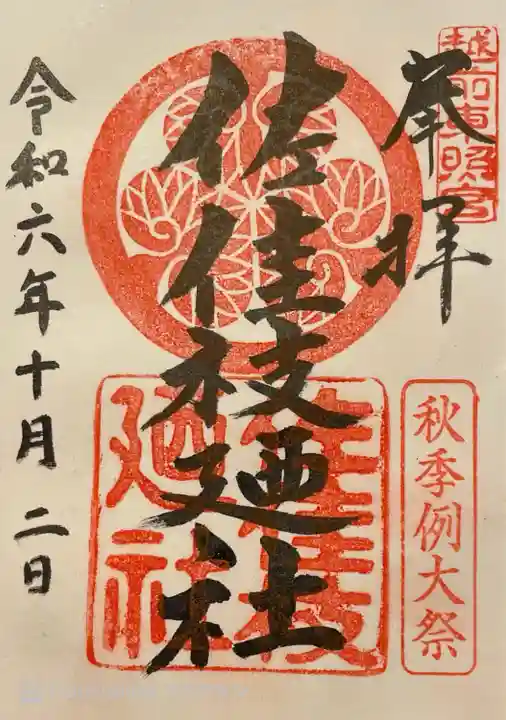 越前東照宮
奉拝
秋季例大祭
佐佳枝廼社
佐佳枝
廼社
令和六年十月二日